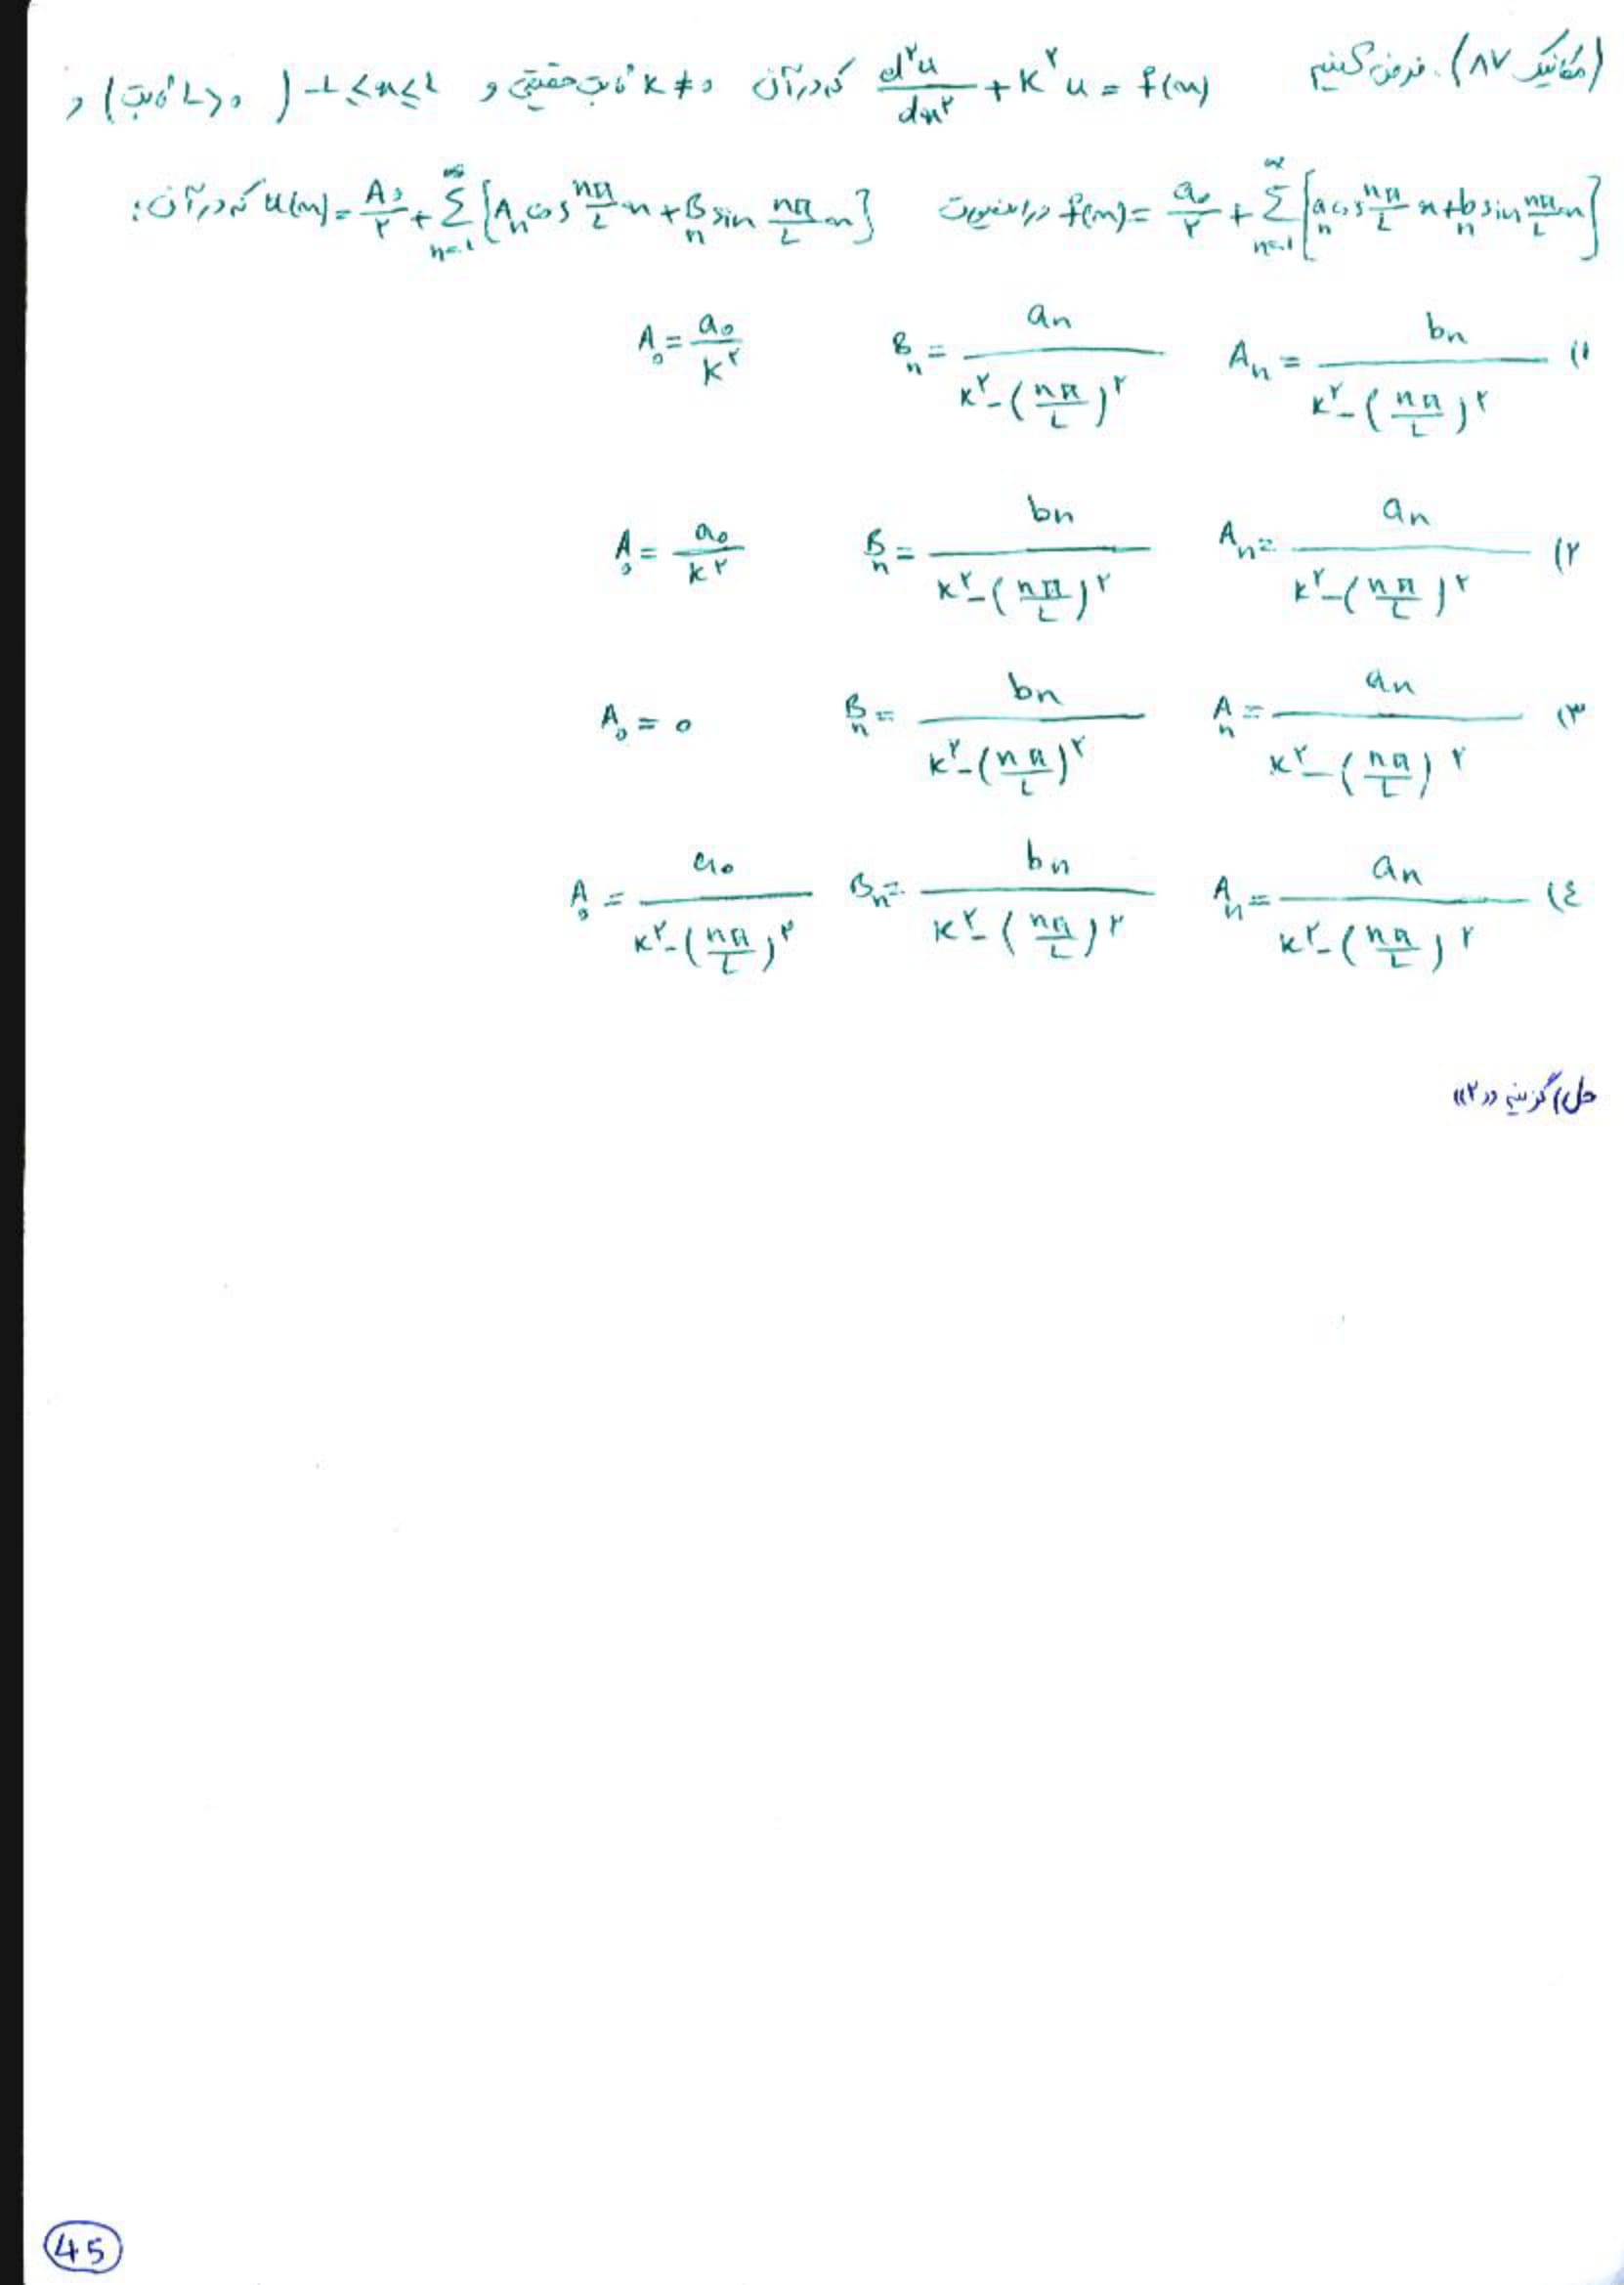 (مکانیک ۸۷). فرض کنیم d²u/dx² + K²u = f(x) که در آن K ≠ 0 ثابت حقیقی و -L ≤ x ≤ L ( L > 0 ثابت) و
f(x) = a₀/۲ + Σ_{n=1}^{∞} [aₙ cos nπ/L x + bₙ sin nπ/L x] در اینصورت u(x) = A₀/۲ + Σ_{n=1}^{∞} [Aₙ cos nπ/L x + Bₙ sin nπ/L x] که در آن:
۱) Aₙ = bₙ / (K² - (nπ/L)²) Bₙ = aₙ / (K² - (nπ/L)²) A₀ = a₀/K²
۲) Aₙ = aₙ / (K² - (nπ/L)²) Bₙ = bₙ / (K² - (nπ/L)²) A₀ = a₀/K²
۳) Aₙ = aₙ / (K² - (nπ/L)²) Bₙ = bₙ / (K² - (nπ/L)²) A₀ = 0
۴) Aₙ = aₙ / (K² - (nπ/L)²) Bₙ = bₙ / (K² - (nπ/L)²) A₀ = a₀ / (K² - (nπ/L)²)
حل) گزینه «۲»
45